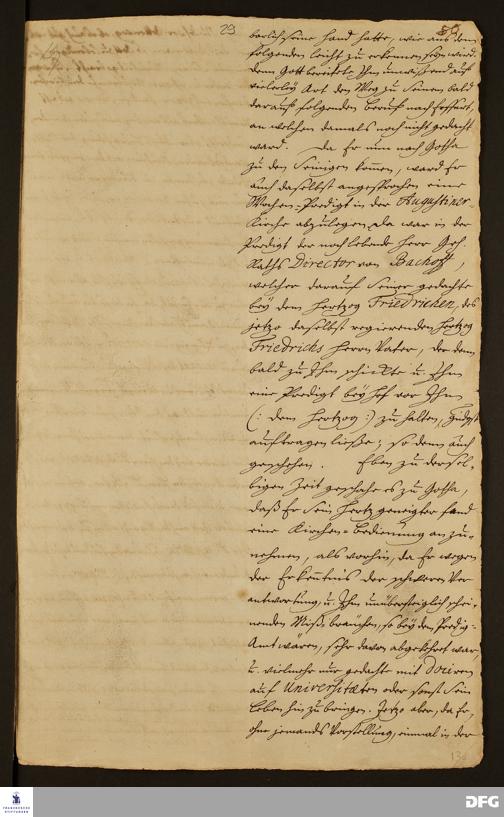 29
berlich seine Hand hatte, wie aus dem
folgenden leicht zu erkennen seyn wird.
Denn Gott bereitete Ihm unwißend auf
vielerley Art den Weg zu seinem bald
darauf folgenden Beruff nach Erffurt,
an welchen damals noch nicht gedacht
ward. Da Er nun nach Gotha
zu den Seinigen kommen, ward Er
auch daselbst angesprochen eine
Wochen-Predigt in der Augustiner-
Kirche abzulegen. Da war in der
Predigt der noch lebende Herr Geh.
Raths Director von Bachoff,
welcher darauf seiner gedachte
bey dem Hertzog Friedrichen, des
jetzo daselbst regierenden Hertzog
Friedrichs Herrn Vater, der denn
bald zu Ihm schickte u. Ihm
eine Predigt bey Hof vor Ihm
(: dem Hertzog :) zu halten, gdgst
auftragen ließe; so denn auch
geschehen. Eben zu dersel-
bigen Zeit geschahe es zu Gotha,
daß Er sein Hertz geneigter fand
eine Kirchen-Bedienung anzu-
nehmen, als vorhin, da Er wegen
der Erkentnis der schweren Ver
antwortung, u. Ihm unübersteiglich schei-
nenden Misbräuchen, so bey dem Predig-
Amt wären, sehr davon abgekehret war,
u. vielmehr nur gedachte mit Dociren
auf Universitæten oder sonst sein
Leben hinzubringen. Jetzo aber, da Er,
ohne jemands Vorstellung, einmal in der
130
FRANCKESCHE
STIFTUNGEN
DFG